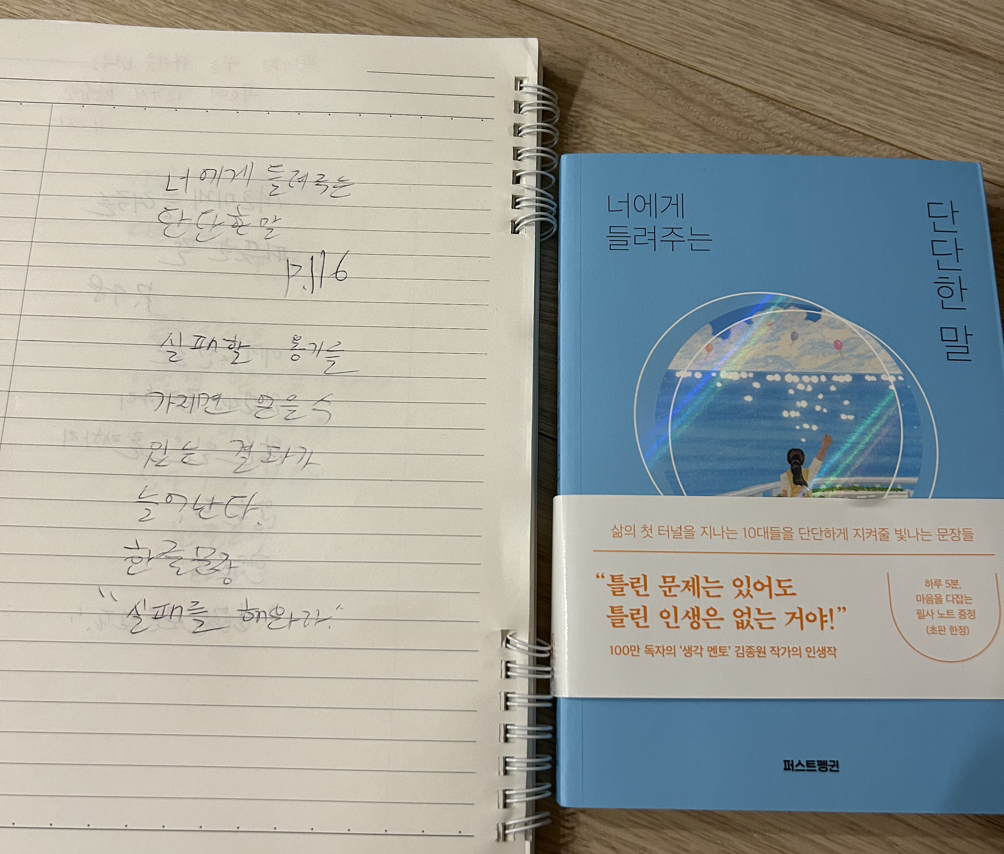 너에게 들려주는
단단한 말
P.116
실패할 용기를
가지면 얻을 수
있는 결과가
늘어난다.
한글문장
"실패를 해와라."
너에게
들려주는
단단한 말
삶의 첫 터널을 지나는 10대들을 단단하게 지켜줄 빛나는 문장들
“틀린 문제는 있어도
틀린 인생은 없는 거야!”
100만 독자의 '생각 멘토' 김종원 작가의 인생작
하루 5분,
마음을 다잡는
필사 노트 증정
(초판 한정)
퍼스트펭귄